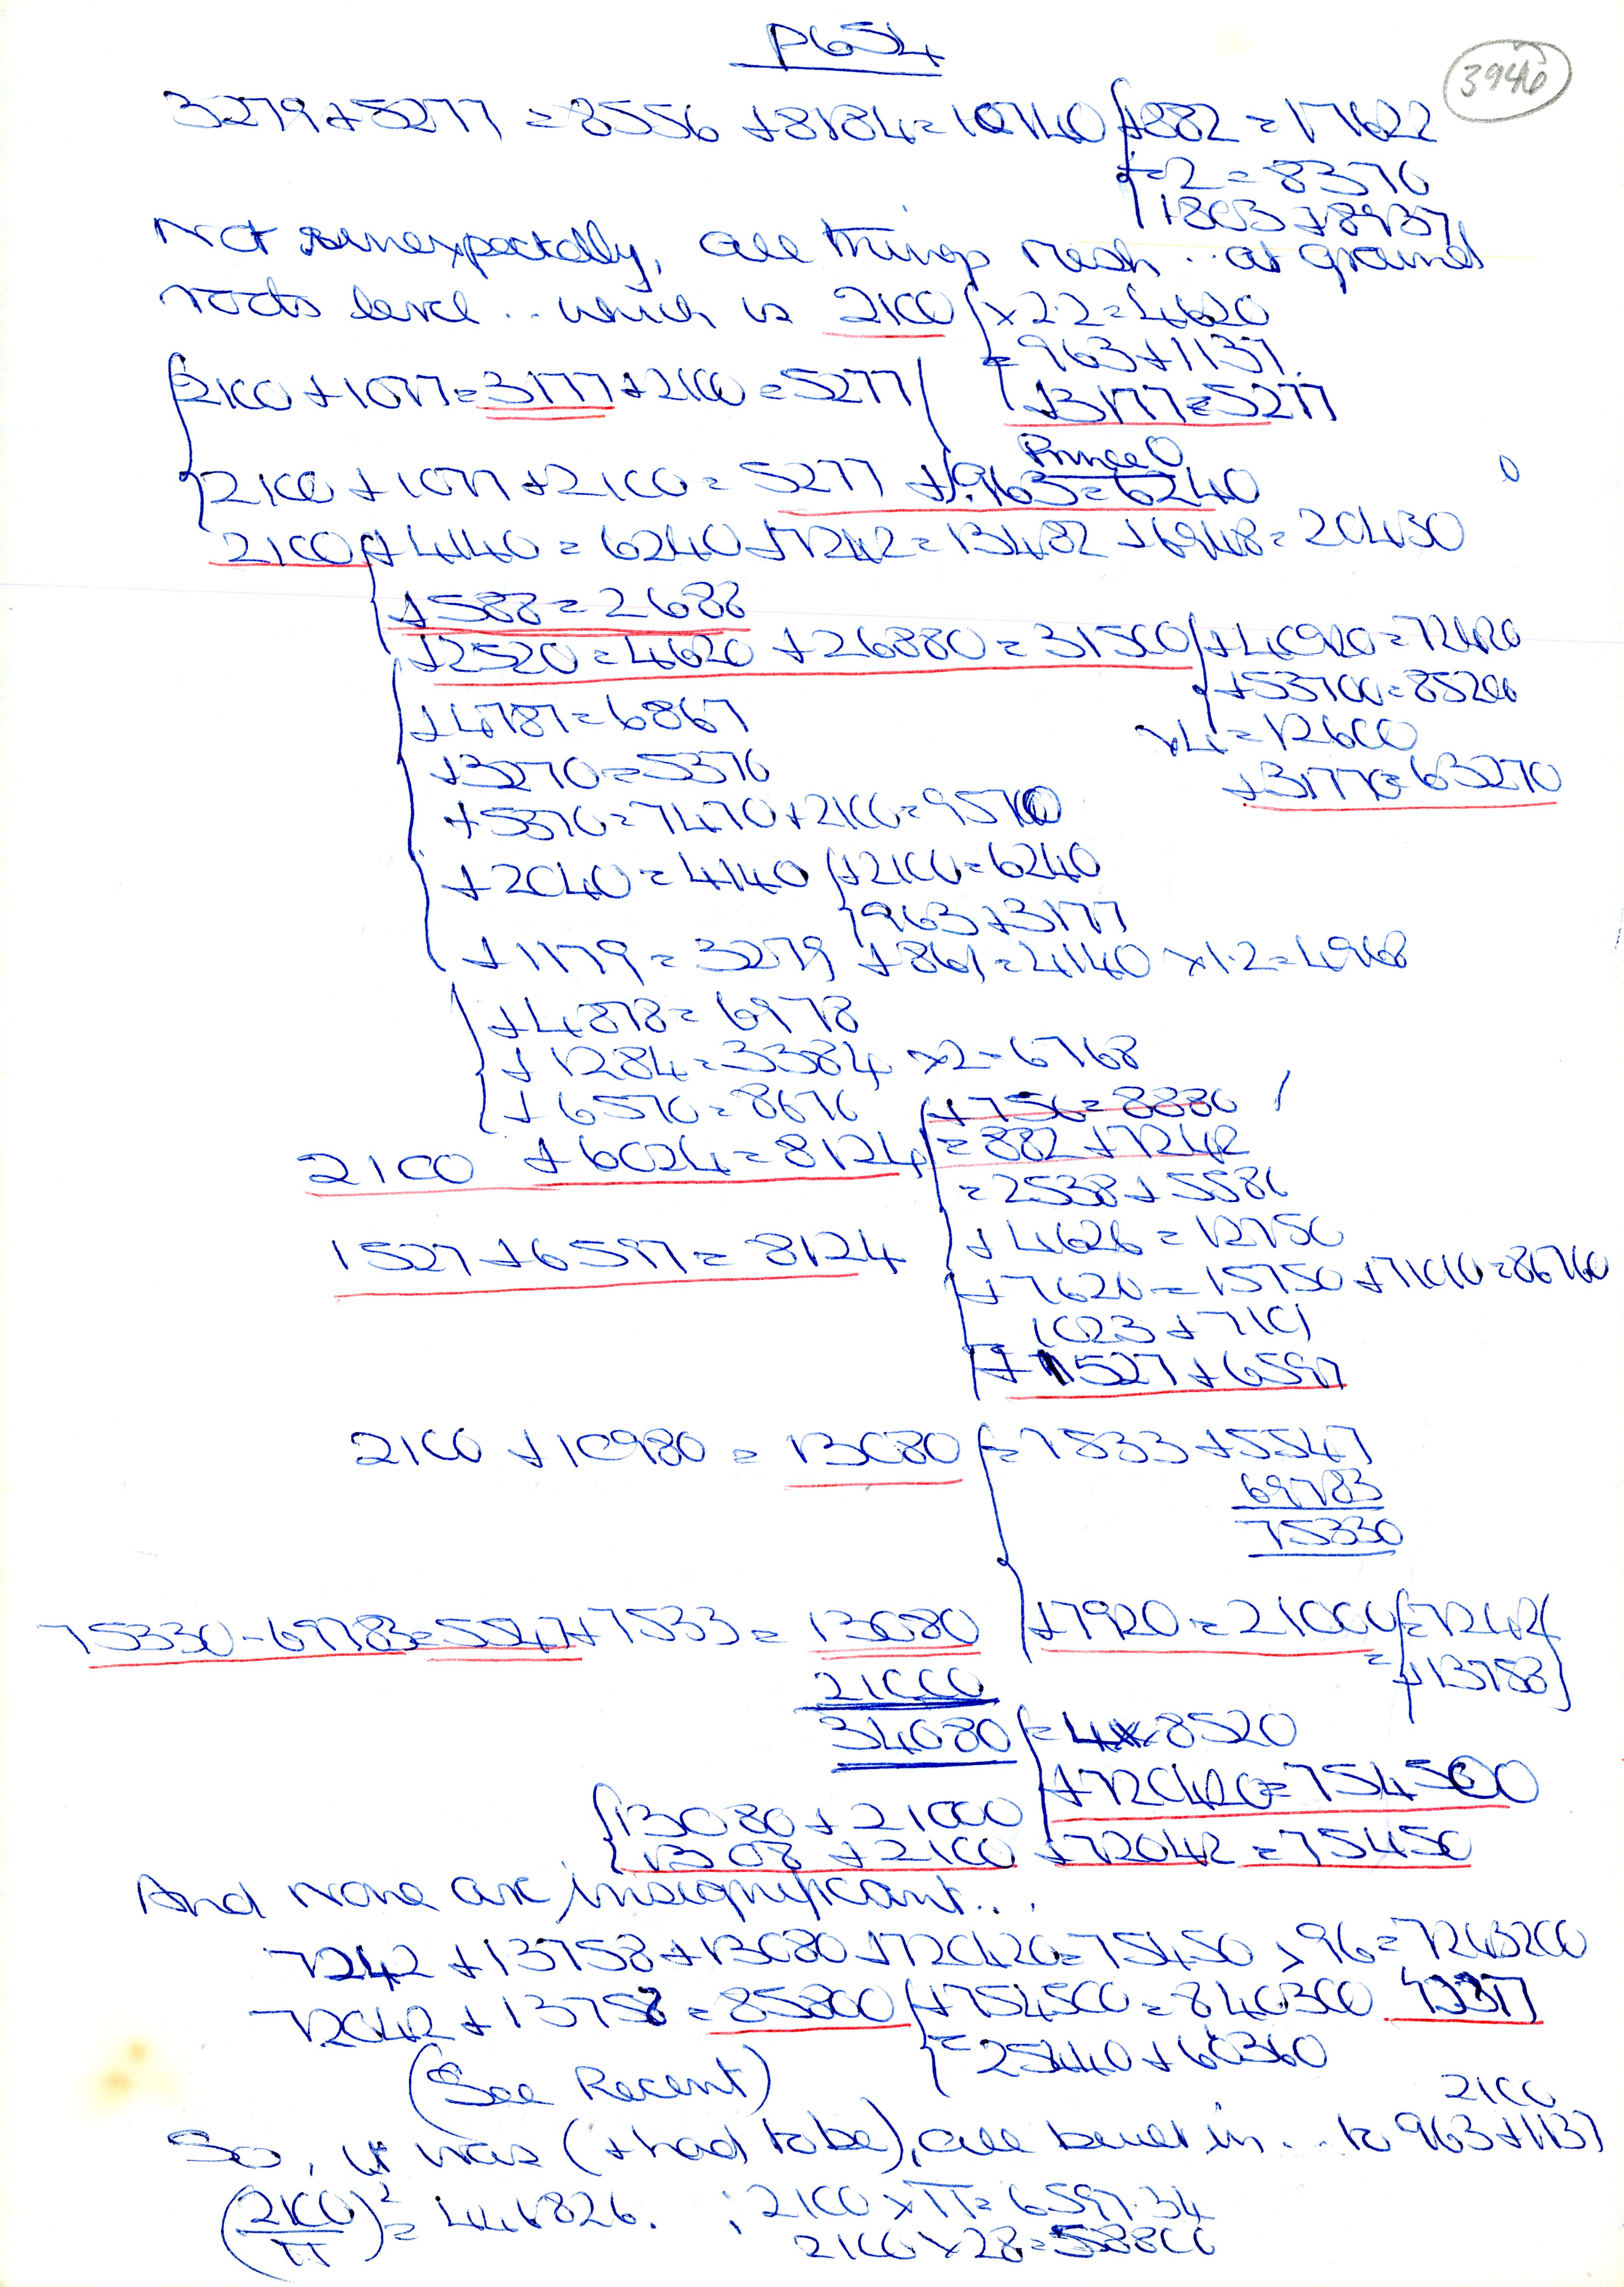 P654
3946
3279+5277 = 8556 + 8184 = 16740 { +882 = 17622
÷2 = 8370
1803 + 8937
Not unexpectedly, all things mesh .. at ground
roots level .. which is 2100 { × 2.2 = 4620
= 963 + 1137
+3177 = 5277
2100 + 1077 = 3177 + 2100 = 5277
Prince O
2100 + 1077 + 2100 = 5277 + 963 = 6240
2100 + 4140 = 6240 + 7242 = 13482 + 6948 = 20430
+588 = 2688
+2520 = 4620 + 26880 = 31500 { +40920 = 72420
+53700 = 85200
+4787 = 6867
×4 = 12600
+3270 = 5370
+31770 = 63270
+5370 = 7470 + 2100 = 9570
+2040 = 4140 { +2100 = 6240
963 + 3177
+1179 = 3279 + 861 = 4140 × 1.2 = 4968
+4878 = 6978
+1284 = 3384 × 2 = 6768
+6570 = 8670
+756 = 8880
2100 + 6024 = 8124 { = 882 + 7242
= 2538 + 5586
1527 + 6597 = 8124
+4626 = 12750
+7620 = 15750 + 71010 = 86760
1023 + 7101
+ 1527 + 6597
2100 + 10980 = 13080 { = 7533 + 5547
69783
75330
75330 - 69783 = 5547 + 7533 = 13080
+7920 = 21000 { = 7242
+13758
21000
34080 { = 4 × 8520
+720420 = 754500
{ 13080 + 21000
1308 + 2100 + 72042 = 75450
And none are insignificant...
7242 + 13758 + 13080 + 720420 = 75450 × 96 = 7243200
72042 + 13758 = 85800 { +754500 = 840300
= 25440 + 60360
(See Recent)
2100
So, it was (+ had to be), all built in... to 963 + 1137
(2100/π)² = 446826. ; 2100 × π = 6597.34
2100 × 28 = 58800